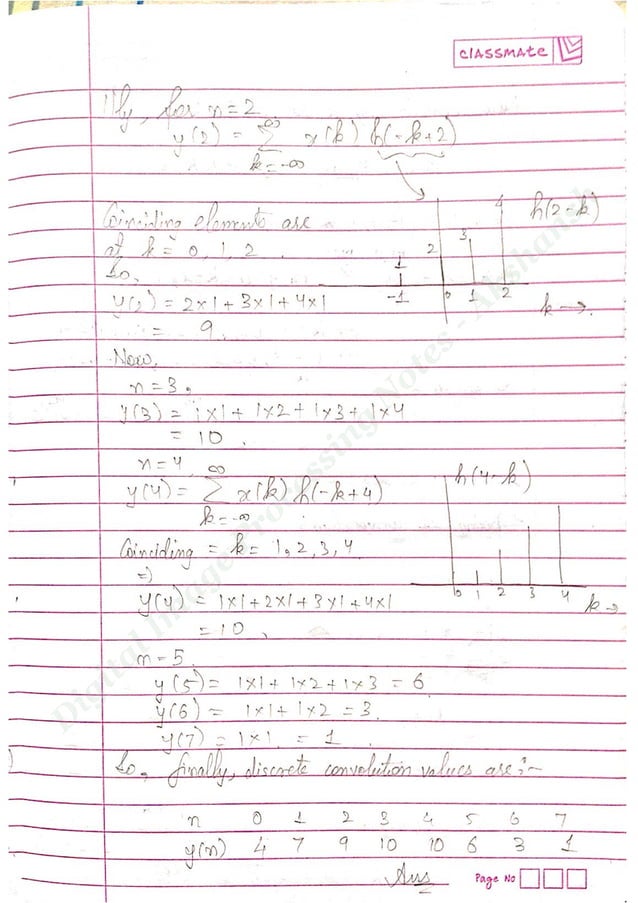 classmate
||ly, for n=2
y(2) = ∑ x(k) h(-k+2)
∞
k=-∞
Coinciding elements are
at k = 0, 1, 2.
So,
y(2) = 2x1 + 3x1 + 4x1
= 9.
h(2-k)
4
3
2
1
-1 0 1 2
k →.
Now,
n=3,
y(3) = 1x1 + 1x2 + 1x3 + 1x4
= 10.
n=4,
y(4) = ∑ x(k) h(-k+4)
∞
k=-∞
Coinciding = k = 1, 2, 3, 4
⇒
y(4) = 1x1 + 2x1 + 3x1 + 4x1
= 10,
h(4-k)
0 1 2 3 4 k →
n=5.
y(5) = 1x1 + 1x2 + 1x3 = 6
y(6) = 1x1 + 1x2 = 3.
y(7) = 1x1 = 1.
So, finally, discrete convolution values are:-
n 0 1 2 3 4 5 6 7
y(n) 4 7 9 10 10 6 3 1
Ans
Page No
Digital Image Processing Notes - Akshansh